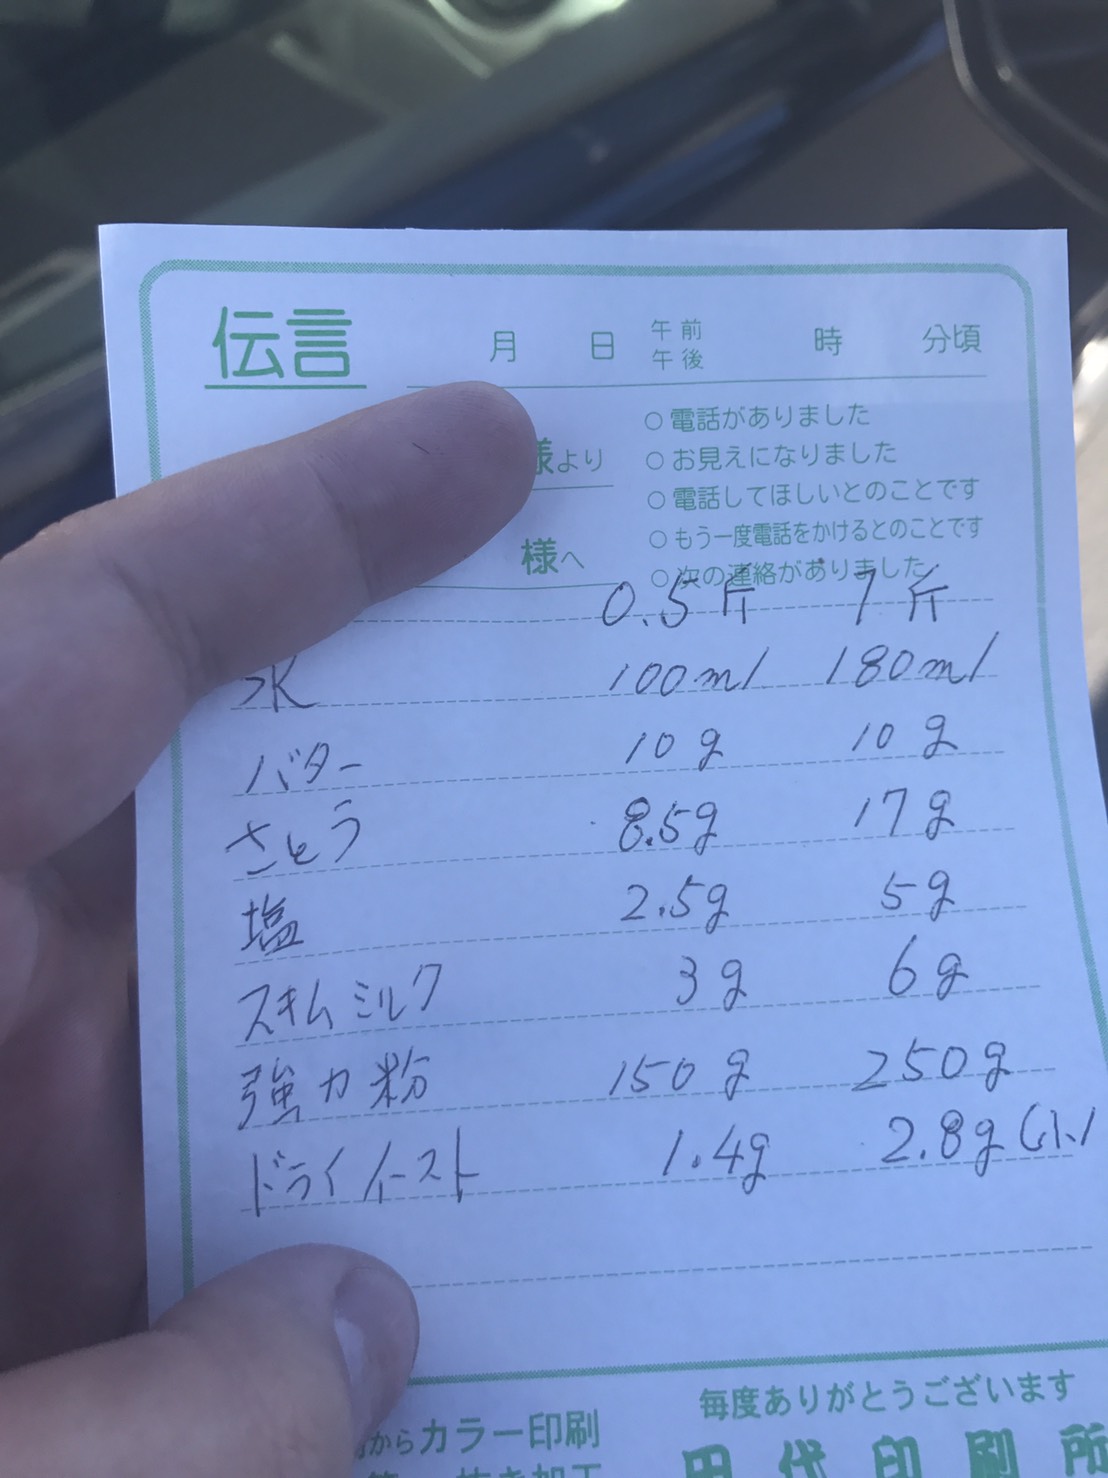 伝言 月 日 午前 午後 時 分頃
様より
様へ
○電話がありました
○お見えになりました
○電話してほしいとのことです
○もう一度電話をかけるとのことです
○次の連絡がありました
0.5斤 1斤
水 100ml 180ml
バター 10g 10g
さとう 8.5g 17g
塩 2.5g 5g
スキムミルク 3g 6g
強力粉 150g 250g
ドライイースト 1.4g 2.8g(小1
毎度ありがとうございます
からカラー印刷
田代印刷所